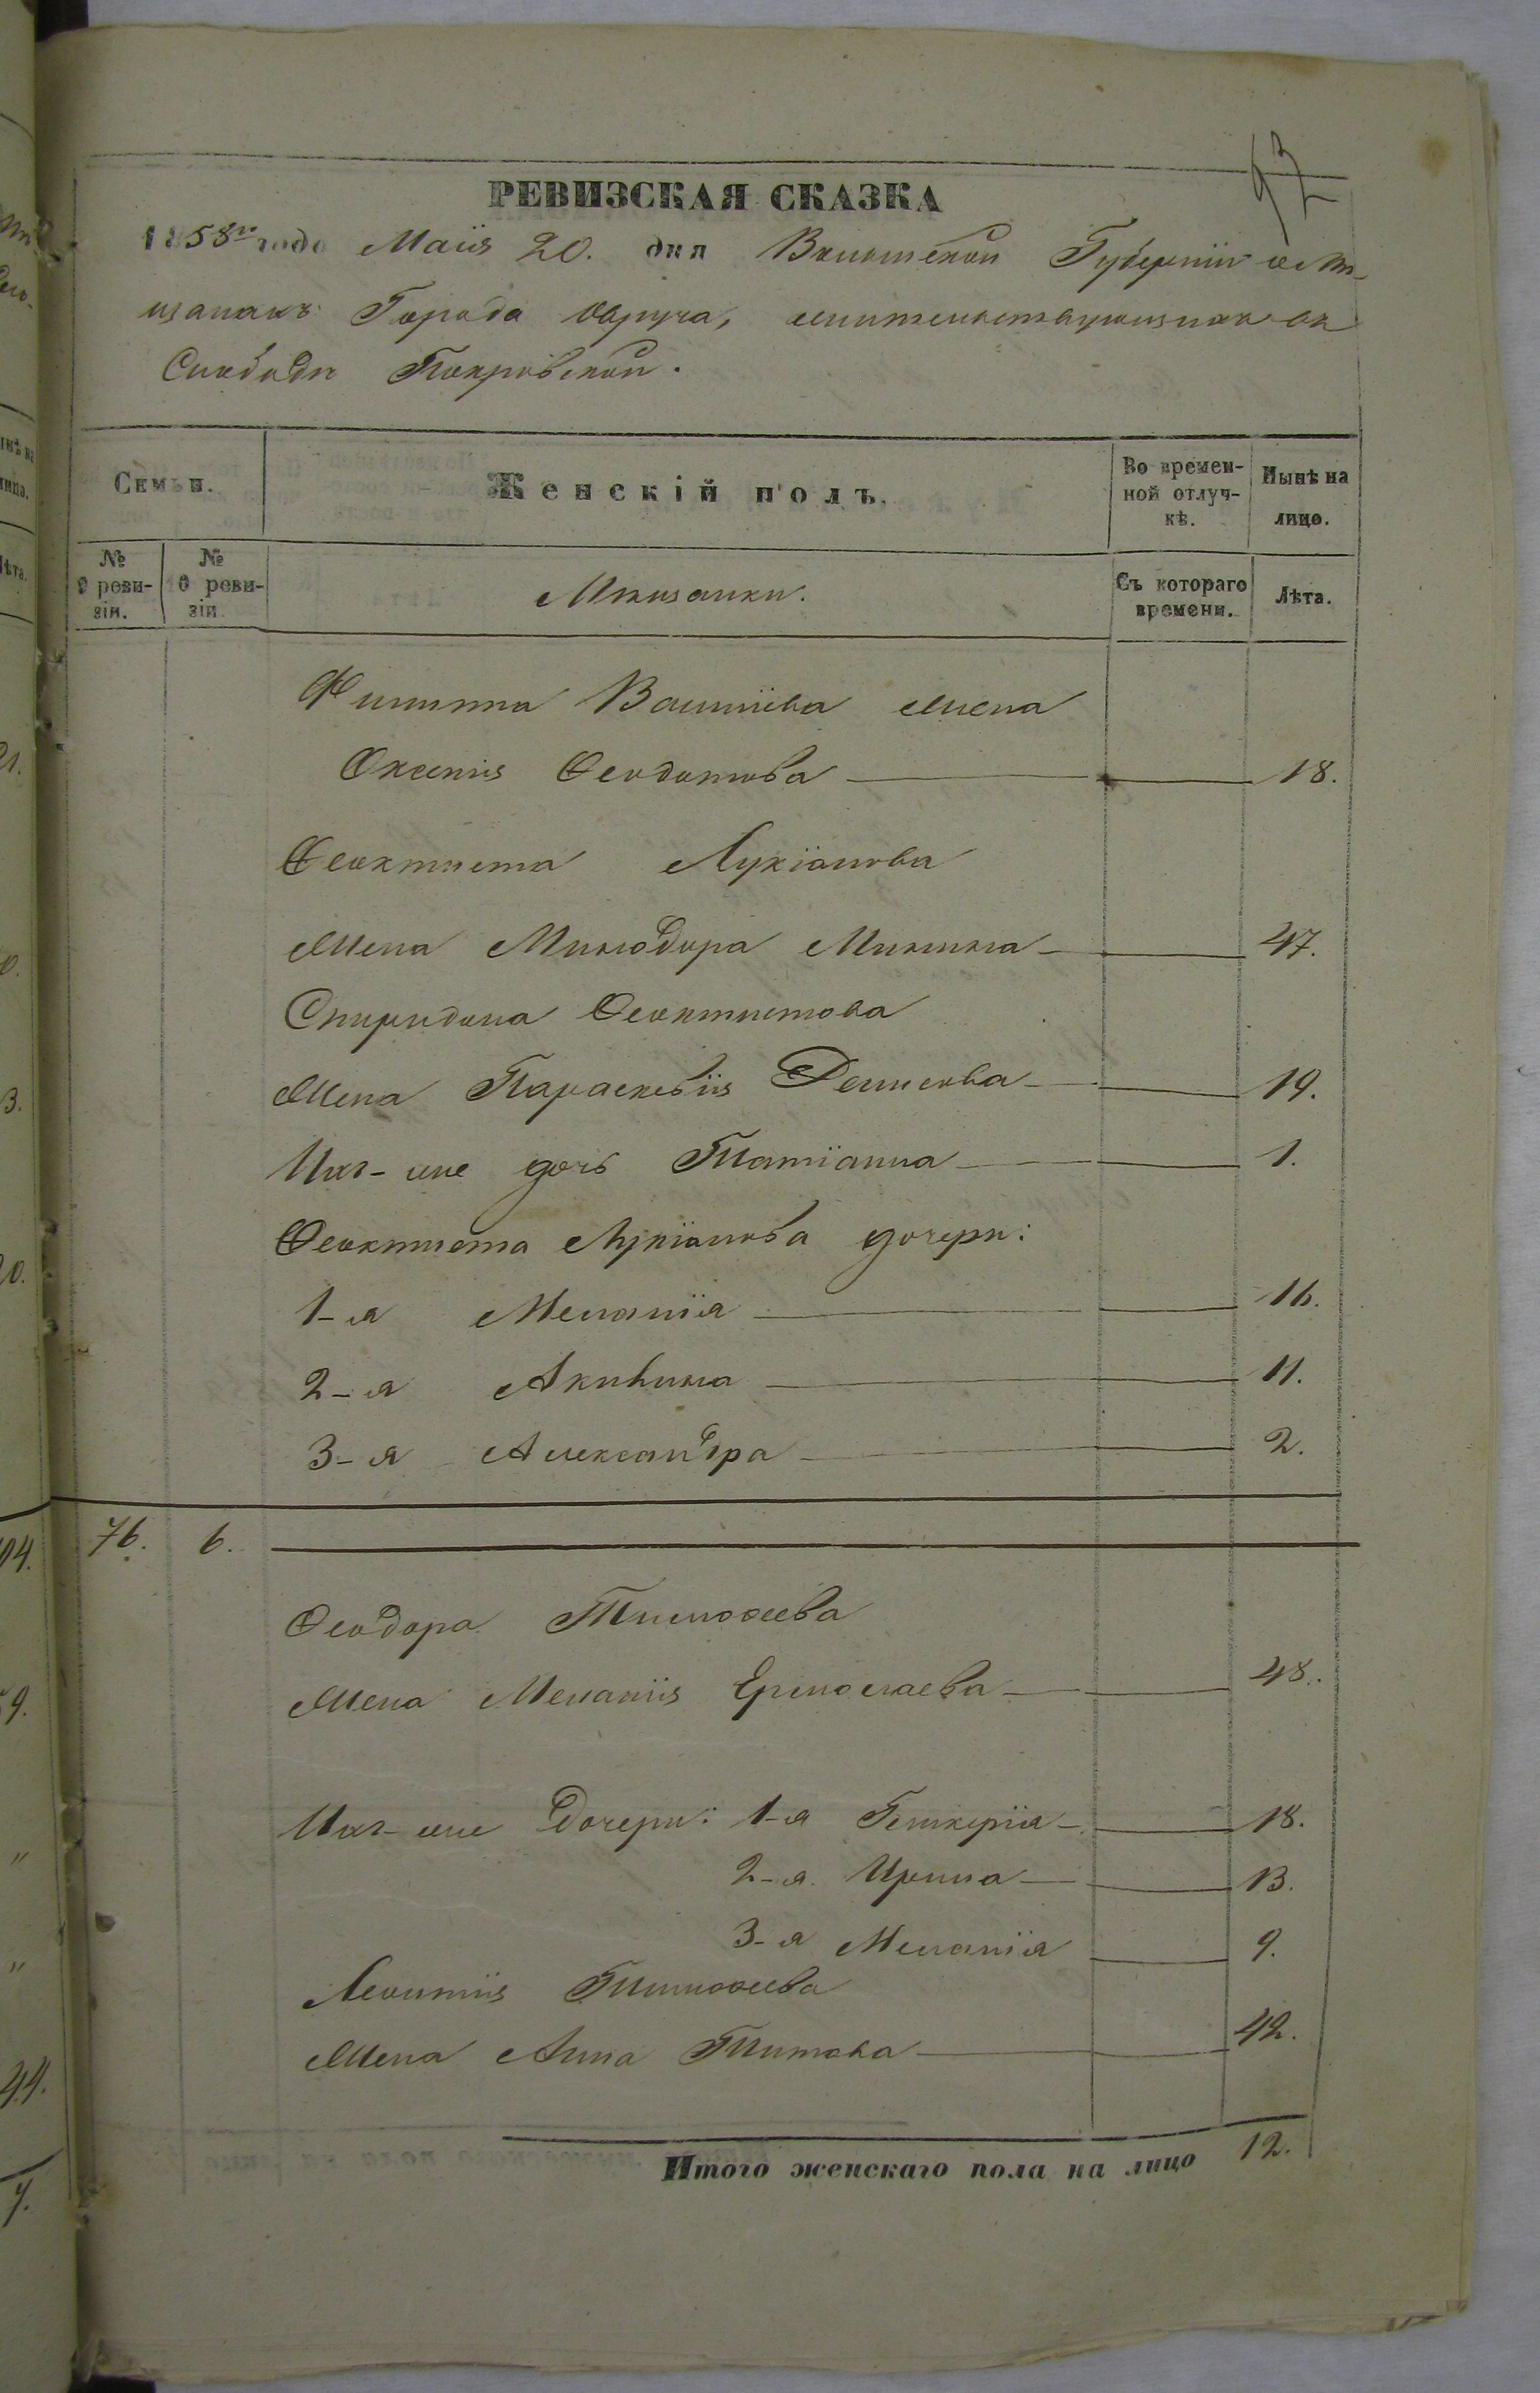 93
РЕВИЗСКАЯ СКАЗКА
1858го года Маія 20. дня Волынской Губерніи о Мѣ-
щанахъ Города Овруча, жительствующихъ въ
Слободѣ Покровской.
Семьи.
Женскій полъ.
Во времен-
ной отлуч-
кѣ.
Нынѣ на
лицо.
№
9 реви-
зіи.
№
10 реви-
зіи.
Мѣщанки.
Съ котораго
времени.
Лѣта.
Филиппа Василіева жена
Оксенія Ѳеодотова 18.
Ѳеоктиста Лукіанова
Жена Минодора Минина 47.
Спиридона Ѳеоктистова
Жена Параскевія Денисова 19.
Ихъ-же дочь Татіанна 1.
Ѳеоктиста Лукіанова дочери:
1-я Меланія 16.
2-я Акилина 11.
3-я Александра 2.
76. 6.
Ѳеодора Тимоѳеева
Жена Меланія Ермолаева 48.
Ихъ-же дочери: 1-я Гликерія 18.
2-я Ирина 13.
3-я Меланія 9.
Леонтія Тимоѳеева
Жена Анна Титова 42.
Итого женскаго пола на лицо 12.